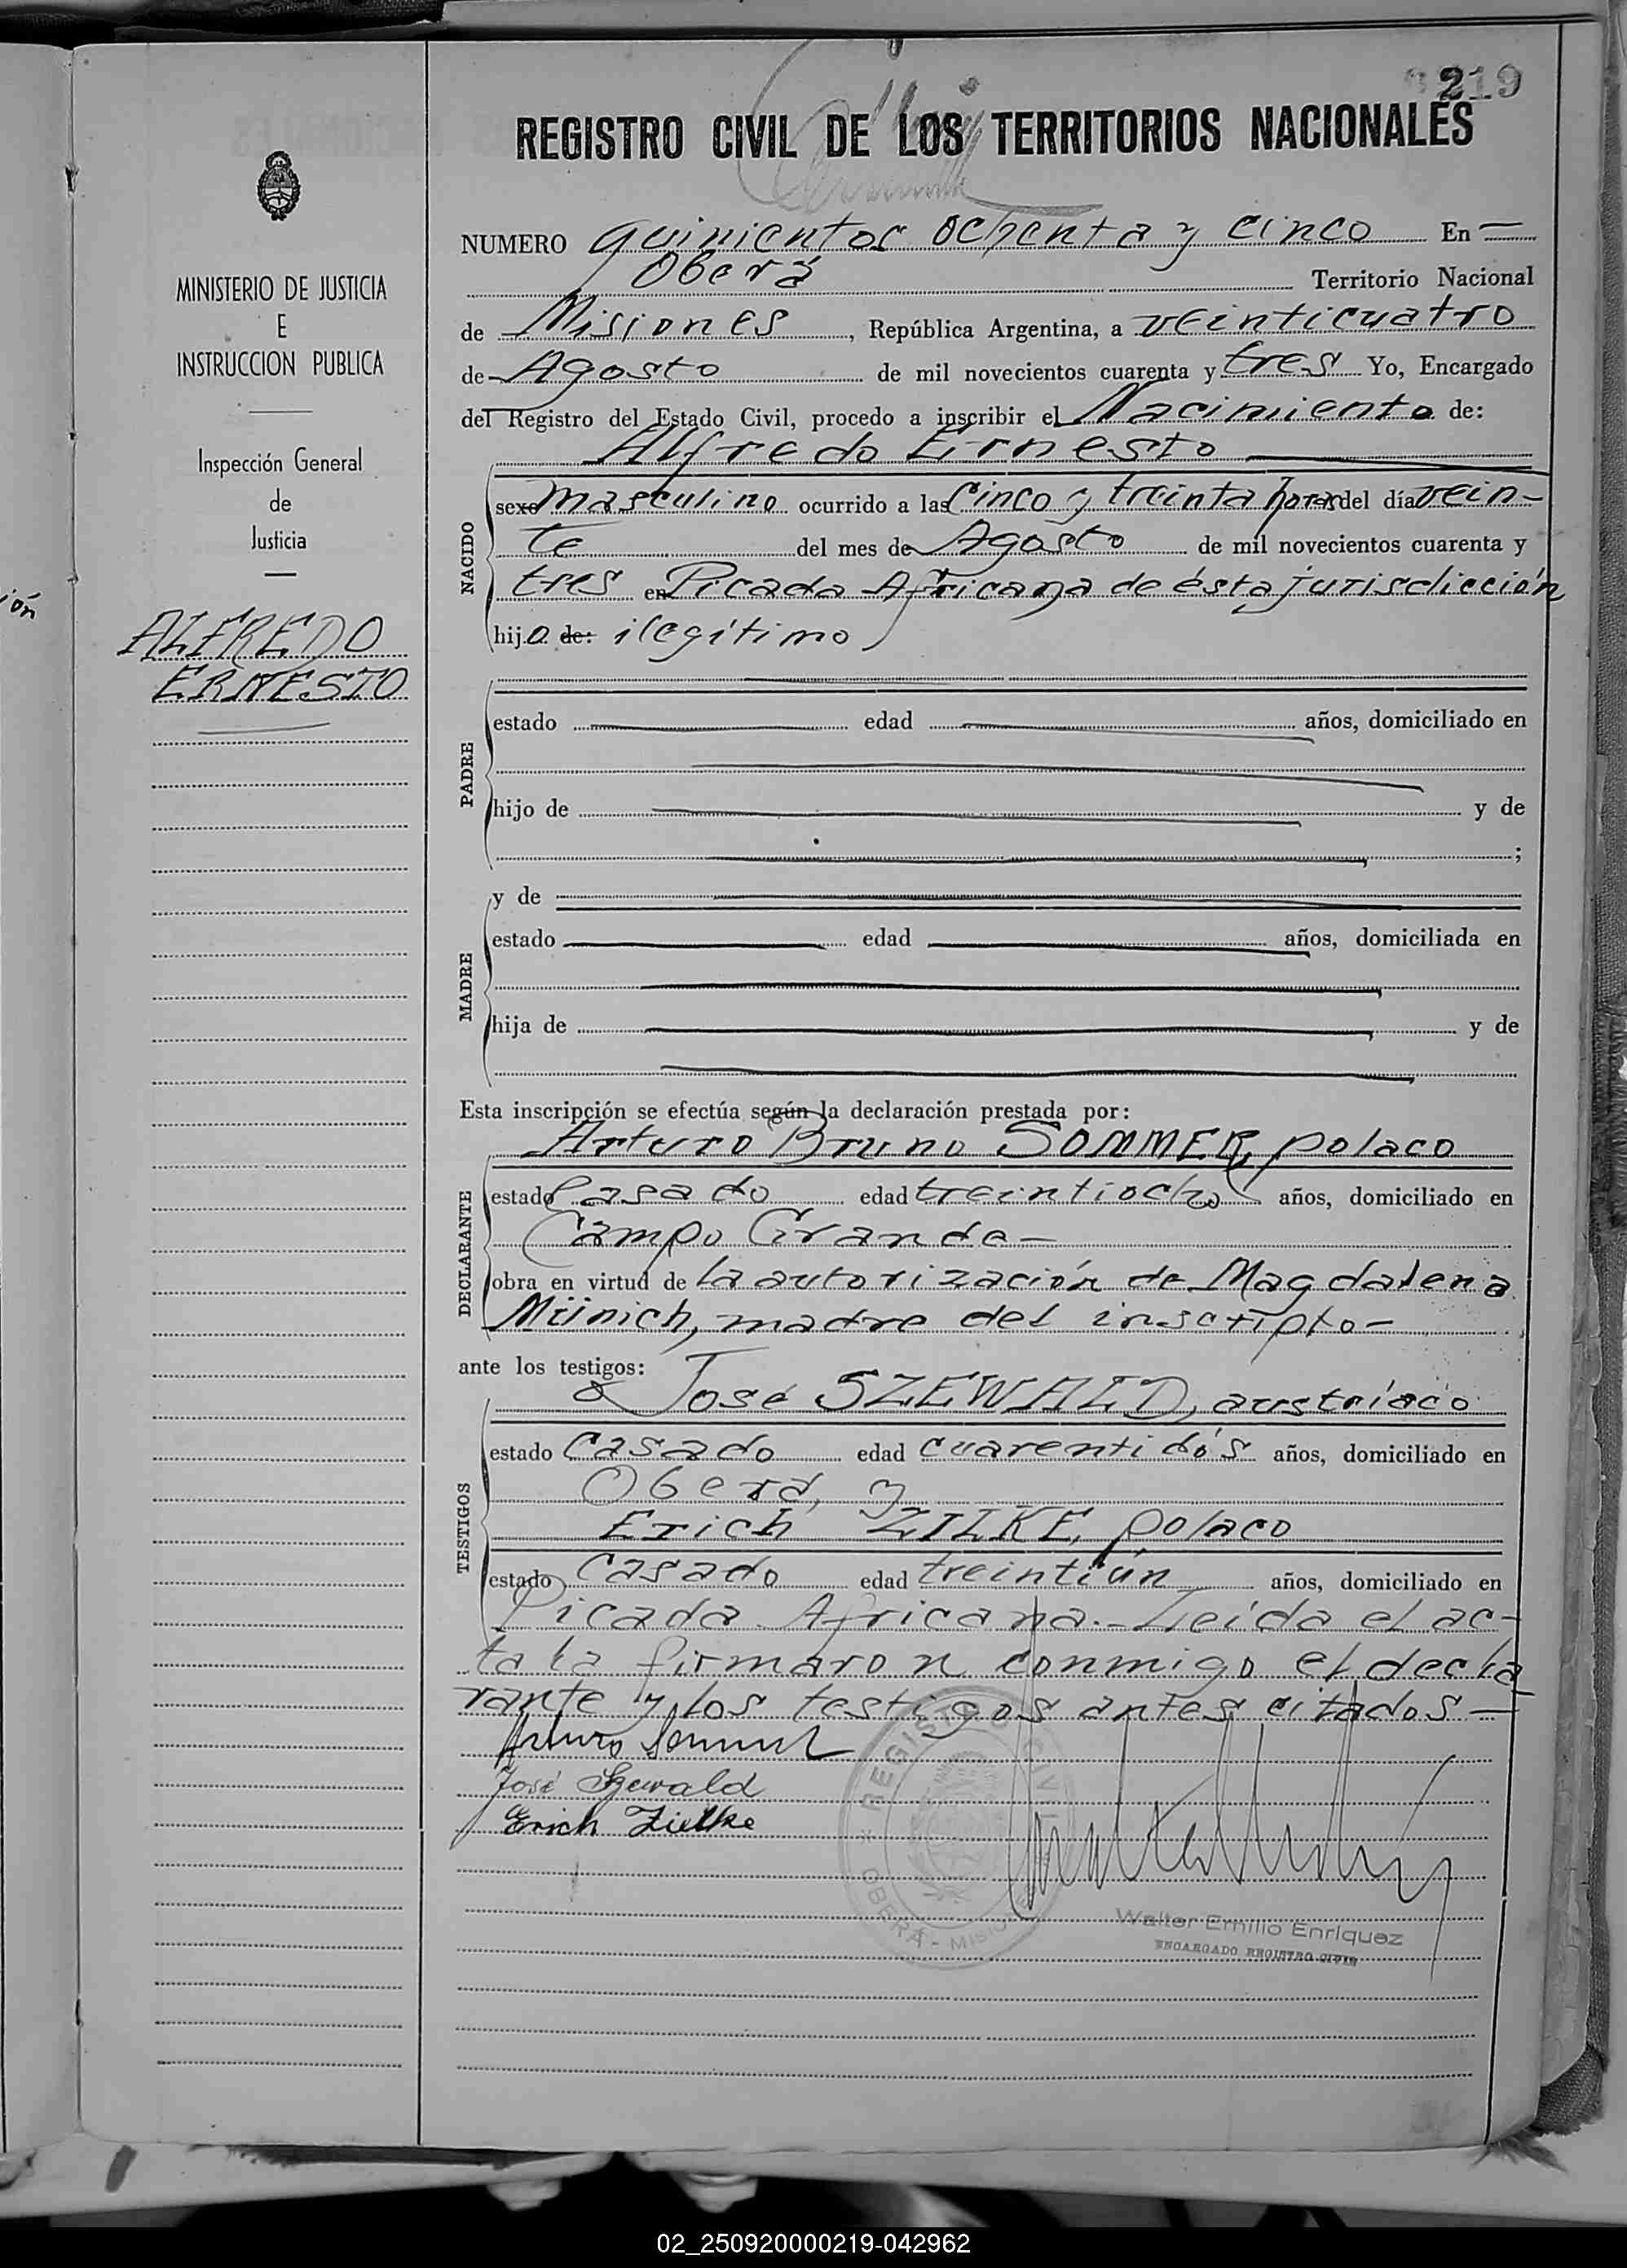 219
REGISTRO CIVIL DE LOS TERRITORIOS NACIONALES
MINISTERIO DE JUSTICIA
E
INSTRUCCION PUBLICA
Inspección General
de
Justicia
ión
ALFREDO
ERNESTO
NUMERO quinientos ochenta y cinco En —
Oberá Territorio Nacional
de Misiones, República Argentina, a veinticuatro
de Agosto de mil novecientos cuarenta y tres Yo, Encargado
del Registro del Estado Civil, procedo a inscribir el Nacimiento de:
Alfredo Ernesto
NACIDO
sexo masculino ocurrido a las cinco y treinta horas del día vein-
te del mes de Agosto de mil novecientos cuarenta y
tres en Picada Africana de ésta jurisdicción
hijo de: ilegítimo
PADRE
estado edad años, domiciliado en
hijo de y de
;
MADRE
y de
estado edad años, domiciliada en
hija de y de
Esta inscripción se efectúa según la declaración prestada por:
DECLARANTE
Arturo Bruno SOMMER, polaco
estado Casado edad treintiocho años, domiciliado en
Campo Grande-
obra en virtud de la autorización de Magdalena
Münich, madre del inscripto-
ante los testigos:
TESTIGOS
José SZEWALD, austríaco
estado casado edad cuarentidós años, domiciliado en
Oberá, y
Erich ZILKE, polaco
estado casado edad treintiún años, domiciliado en
Picada Africana.- Leída el ac-
ta la firmaron conmigo el decla
rante y los testigos antes citados-
Arturo Sommer
José Szewald
Erich Zielke
REGISTRO CIVIL
OBERÁ - MISIONES
Walter Emilio Enriquez
ENCARGADO REGISTRO CIVIL
02_250920000219-042962